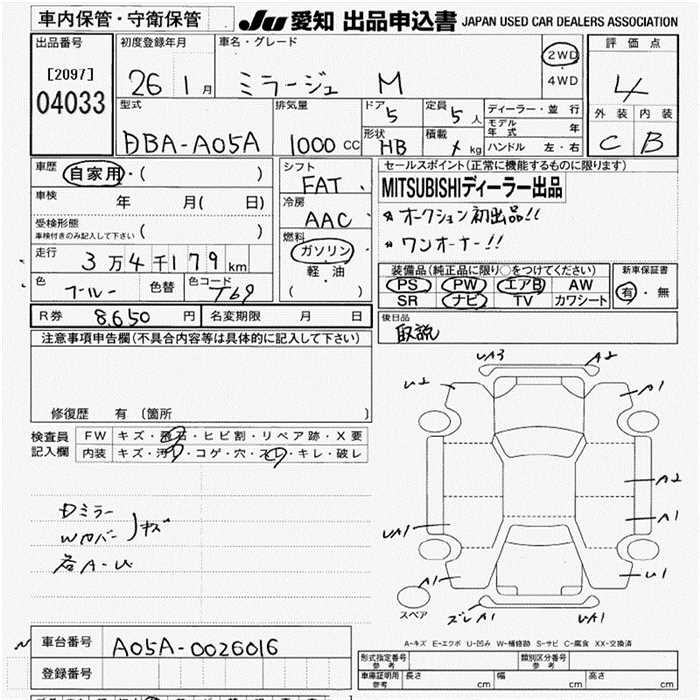 車内保管・守衛保管 JU 愛知 出品申込書 JAPAN USED CAR DEALERS ASSOCIATION
出品番号 初度登録年月 車名・グレード 2WD 評価点
[2097] 26 1月 ミラージュ M 4WD 4
04033 型式 排気量 ドア 5 定員 5人 ディーラー・並行 外装 内装
モデル年式 年
DBA-A05A 1000 CC 形状 HB 積載 kg ハンドル 左・右 C B
車歴 自家用・( ) シフト FAT セールスポイント(正常に機能するものに限ります)
車検 年 月( 日) 冷房 AAC MITSUBISHIディーラー出品
受検形態 ( ) オークション初出品!!
車検付きのみ記入して下さい 燃料 ガソリン ワンオーナー!!
走行 3万4千179km 軽油 装備品(純正品に限り○をつけてください) 新車保証書
色 ブルー 色替 色コード T69 ( ) PS PW エアB AW 有・無
SR ナビ TV カワシート
R券 8,650円 名変期限 月 日 後日品
注意事項申告欄(不具合内容等は具体的に記入して下さい) 取説
修復歴 有〔箇所 〕
検査員 FW キズ・飛石・ヒビ割・リペア跡・X要
記入欄 内装 キズ・汚・コゲ・穴・スレ・キレ・破レ
UA3 A2
U2 A1
A2
UA1 A1
A1 U1
スペア ズレA1 UA1
Dミラー
Wカバー キズ
各A-U
A-キズ E-エクボ U-凹み W-補修跡 S-サビ C-腐食 XX-交換済
車台番号 A05A-0026016
登録番号
形式指定番号 参考 類別区分番号 参考
車庫証明用 参考 長さ cm 幅 cm 高さ cm